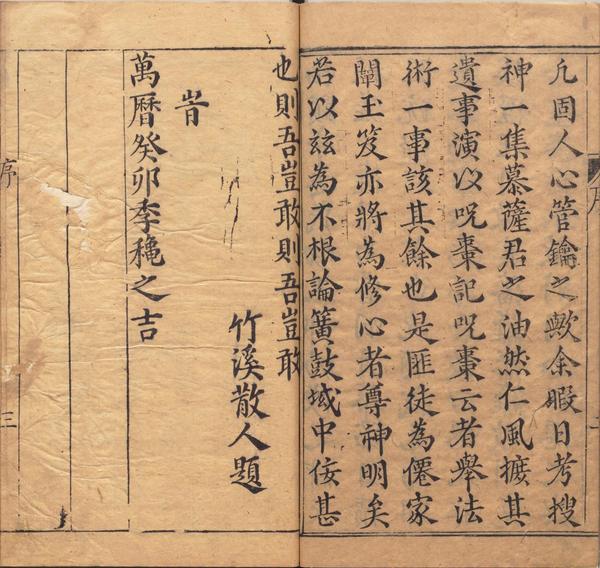 凢固人心管鑰之歟余暇日考搜
神一集慕薩君之油然仁風摭其
遺事演以咒棗記咒棗云者舉法
術一事該其餘也是匪徒為僊家
闡玉笈亦將為修心者尊神明矣
若以玆為不根論簧鼓域中佞甚
也則吾豈敢則吾豈敢
竹溪散人題
旹
萬曆癸卯季穐之吉
序
三